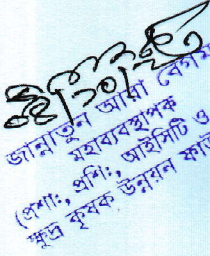 জান্নাতুন আরা বেগম
মহাব্যবস্থাপক
(প্রশা:, প্রশি:, আইসিটি ও
ক্ষুদ্র কৃষক উন্নয়ন ফাউ